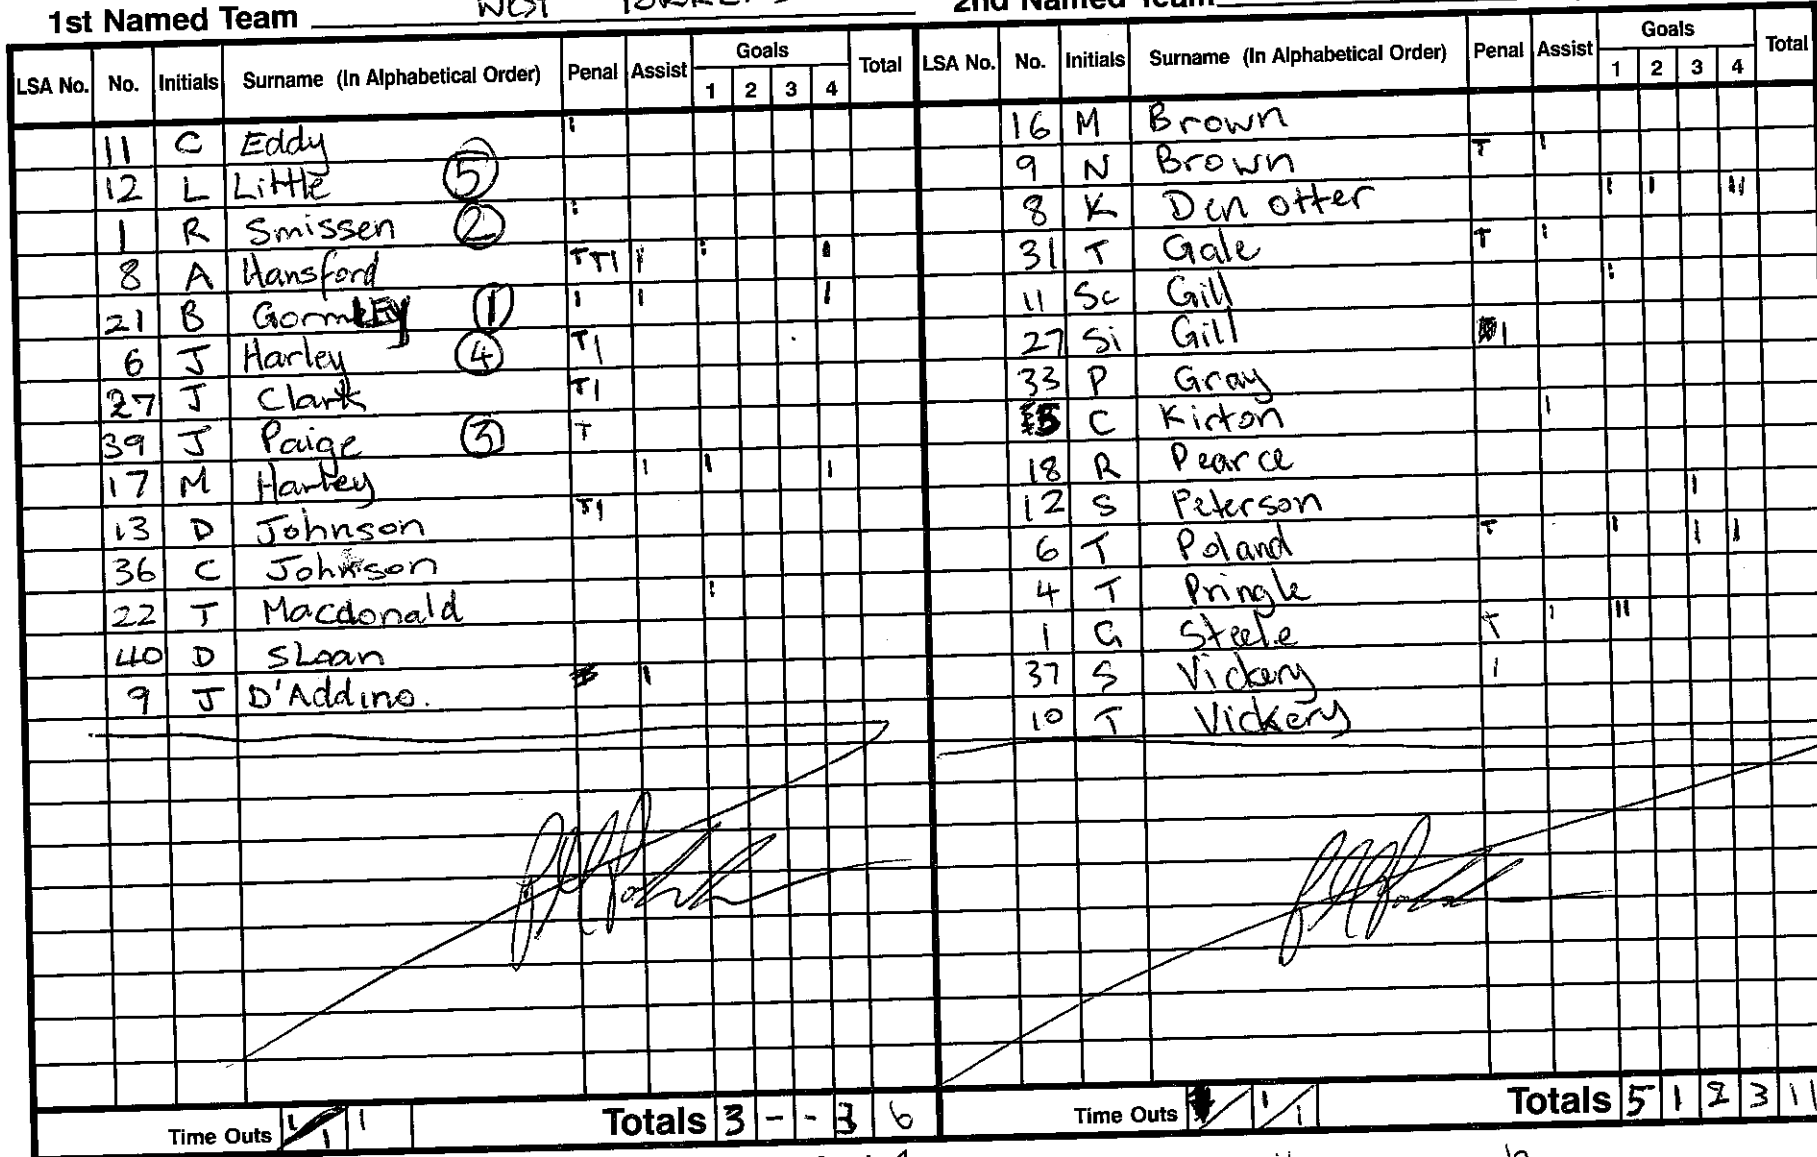 1st Named Team WEST
2nd Named Team
LSA No. No. Initials Surname (In Alphabetical Order) Penal Assist Goals 1 2 3 4 Total
11 C Eddy ı
12 L Little 5
1 R Smissen 2 ı
8 A Hansford TT1 1 1 1
21 B GormLEy 1 1 1 1
6 J Harley 4 T1
27 J Clark T1
39 J Paige 3 T
17 M Harley 1 1 1
13 D Johnson T1
36 C Johnson
22 T Macdonald 1
40 D Sloan
9 J D'Addino. 1
Time Outs 1 1 1
Totals 3 - - 3 6
LSA No. No. Initials Surname (In Alphabetical Order) Penal Assist Goals 1 2 3 4 Total
16 M Brown
9 N Brown T 1
8 K Den otter 1 1 11
31 T Gale T 1
11 Sc Gill 1
27 Si Gill 1
33 P Gray
5 C Kirton 1
18 R Pearce
12 S Peterson 1
6 T Poland T 1 1 1
4 T Pringle
1 G Steele T 1 11
37 S Vickery 1
10 T Vickery
Time Outs 1 1
Totals 5 1 2 3 11